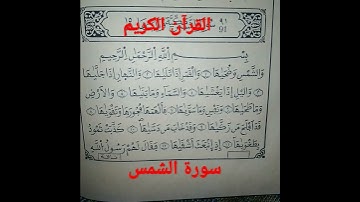 القرآن الكريم
٩١
91
١٥
بِسْمِ اللَّهِ الرَّحْمَٰنِ الرَّحِيمِ
وَالشَّمْسِ وَضُحَىٰهَا ۝١ وَالْقَمَرِ إِذَا تَلَىٰهَا ۝٢ وَالنَّهَارِ إِذَا جَلَّىٰهَا
۝٣ وَالَّيْلِ إِذَا يَغْشَىٰهَا ۝٤ وَالسَّمَاءِ وَمَا بَنَىٰهَا ۝٥ وَالْأَرْضِ
وَمَا طَحَىٰهَا ۝٦ وَنَفْسٍ وَمَا سَوَّىٰهَا ۝٧ فَأَلْهَمَهَا فُجُورَهَا وَتَقْوَىٰهَا ۝٨
قَدْ أَفْلَحَ مَن زَكَّىٰهَا ۝٩ وَقَدْ خَابَ مَن دَسَّىٰهَا ۝١٠ كَذَّبَتْ ثَمُودُ
بِطَغْوَىٰهَا ۝١١ إِذِ انبَعَثَ أَشْقَىٰهَا ۝١٢ فَقَالَ لَهُمْ رَسُولُ اللَّهِ
سورة الشمس